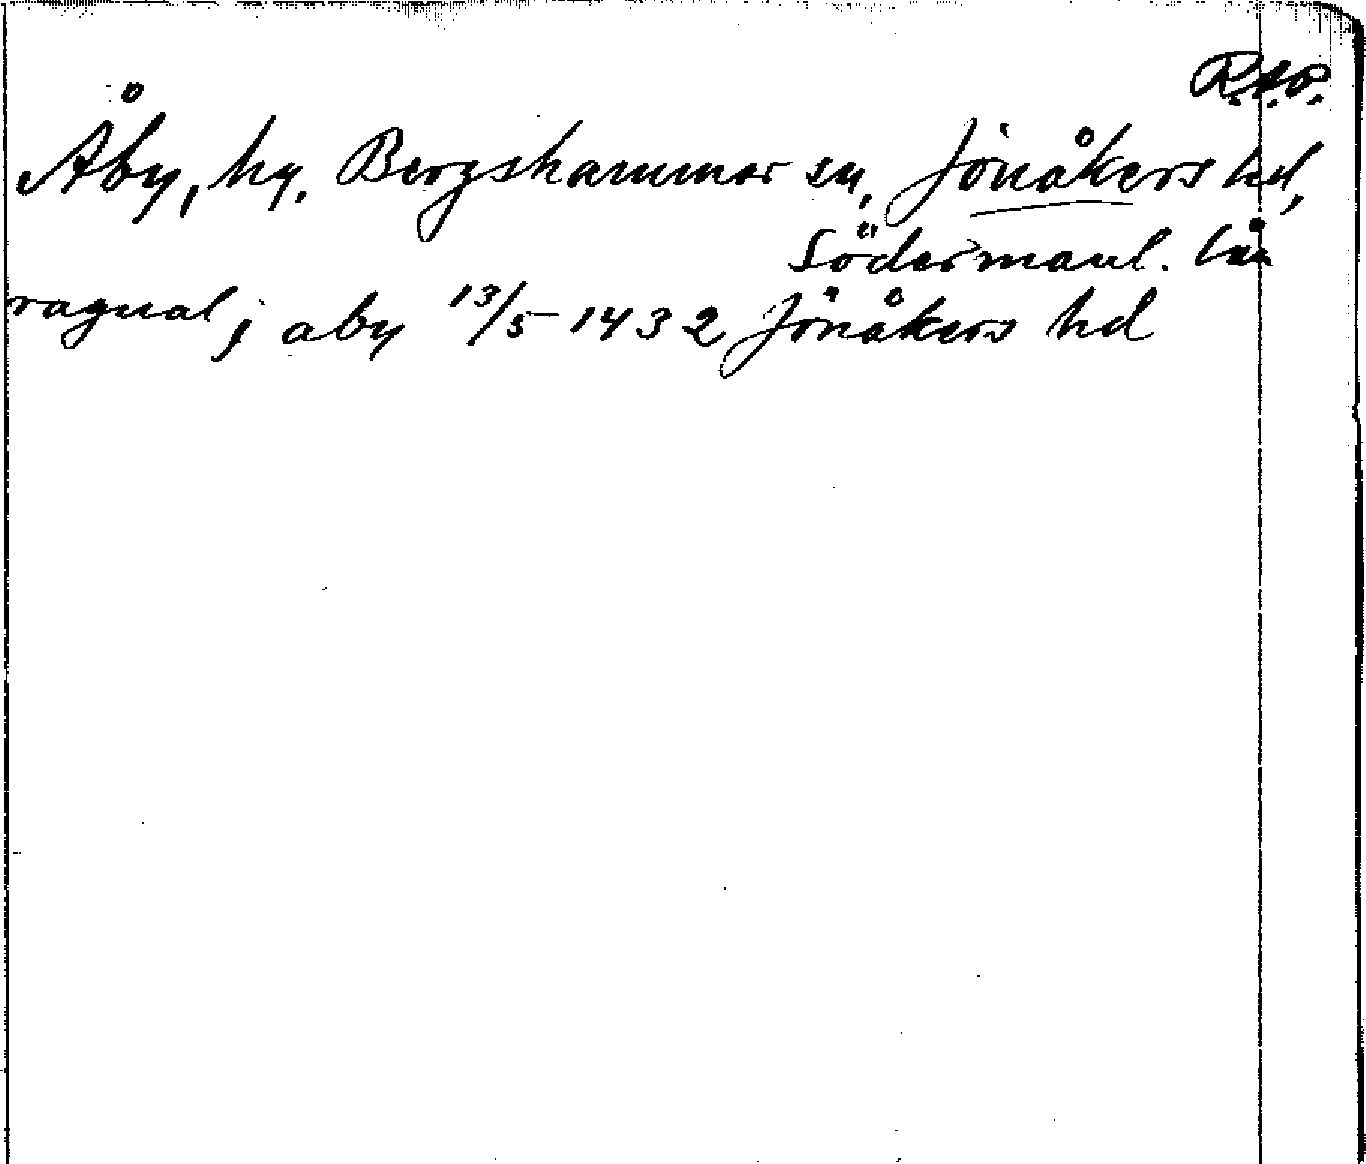 R.A.P.
Åby, by, Bergshammar sn, Jönåkers hd,
Södermanl. län
ragual j aby 13/5 1432 Jönåkers hd